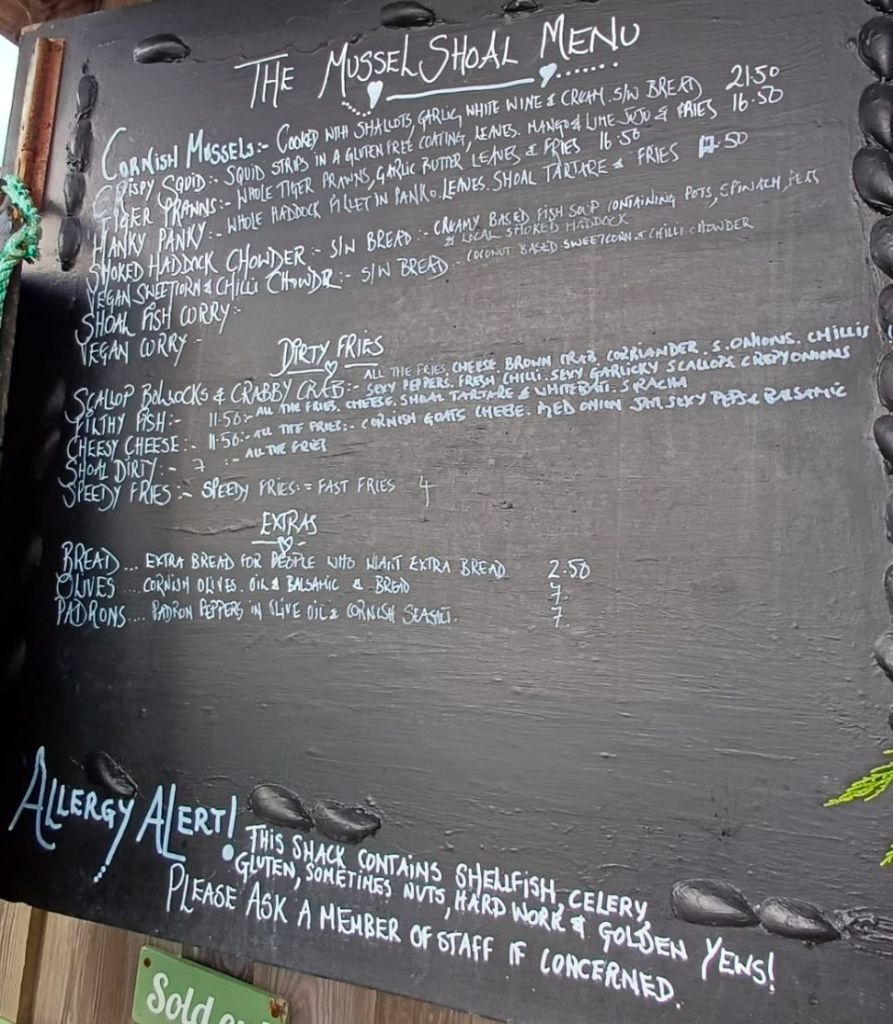 THE MUSSEL SHOAL MENU
CORNISH MUSSELS:- COOKED WITH SHALLOTS, GARLIC, WHITE WINE & CREAM. S/W BREAD 21.50
CRISPY SQUID:- SQUID STRIPS IN A GLUTEN FREE COATING, LEAVES. MANGO & LIME JUJU & FRIES 16.50
TIGER PRAWNS:- WHOLE TIGER PRAWNS, GARLIC BUTTER LEAVES & FRIES 16.50
HANKY PANKY:- WHOLE HADDOCK FILLET IN PANKO. LEAVES. SHOAL TARTARE & FRIES .50
SMOKED HADDOCK CHOWDER:- S/W BREAD:- CREAMY BASED FISH SOUP CONTAINING POTS, SPINACH,
& LOCAL SMOKED HADDOCK
VEGAN SWEETCORN & CHILLI CHOWDR:- S/W BREAD - COCONUT BASED SWEETCORN & CHILLI CHOWDER
SHOAL FISH CURRY:-
VEGAN CURRY -
DIRTY FRIES
SCALLOP & CRABBY CRAB:- ALL THE FRIES. CHEESE. BROWN CRAB. CORRIANDER. S.ONIONS. CHILLIS
SEXY PEPPERS. FRESH CHILLI. SEXY GARLICKY SCALLOPS. CREPYONIONS
FILTHY FISH:- 11.50:- ALL THE FRIES. CHEESE. SHOAL TARTARE & WHITEBAIT.
CHEESY CHEESE:- 11.50:- ALL THE FRIES:- CORNISH GOATS CHEESE. RED ONION JAM. SEXY PEPS & BALSAMIC
SHOAL DIRTY:- 7 :- ALL THE FRIES
SPEEDY FRIES:- SPEEDY FRIES:= FAST FRIES 4
EXTRAS
BREAD... EXTRA BREAD FOR PEOPLE WHO WANT EXTRA BREAD 2.50
OLIVES .... CORNISH OLIVES. OIL & BALSAMIC & BREAD 7.
PADRONS.... PADRON PEPPERS IN OLIVE OIL & CORNISH SEASALT. 7.
ALLERGY ALERT!
THIS SHACK CONTAINS SHELLFISH, CELERY,
GLUTEN, SOMETIMES NUTS, HARD WORK & GOLDEN YEWS!
PLEASE ASK A MEMBER OF STAFF IF CONCERNED.
Sold